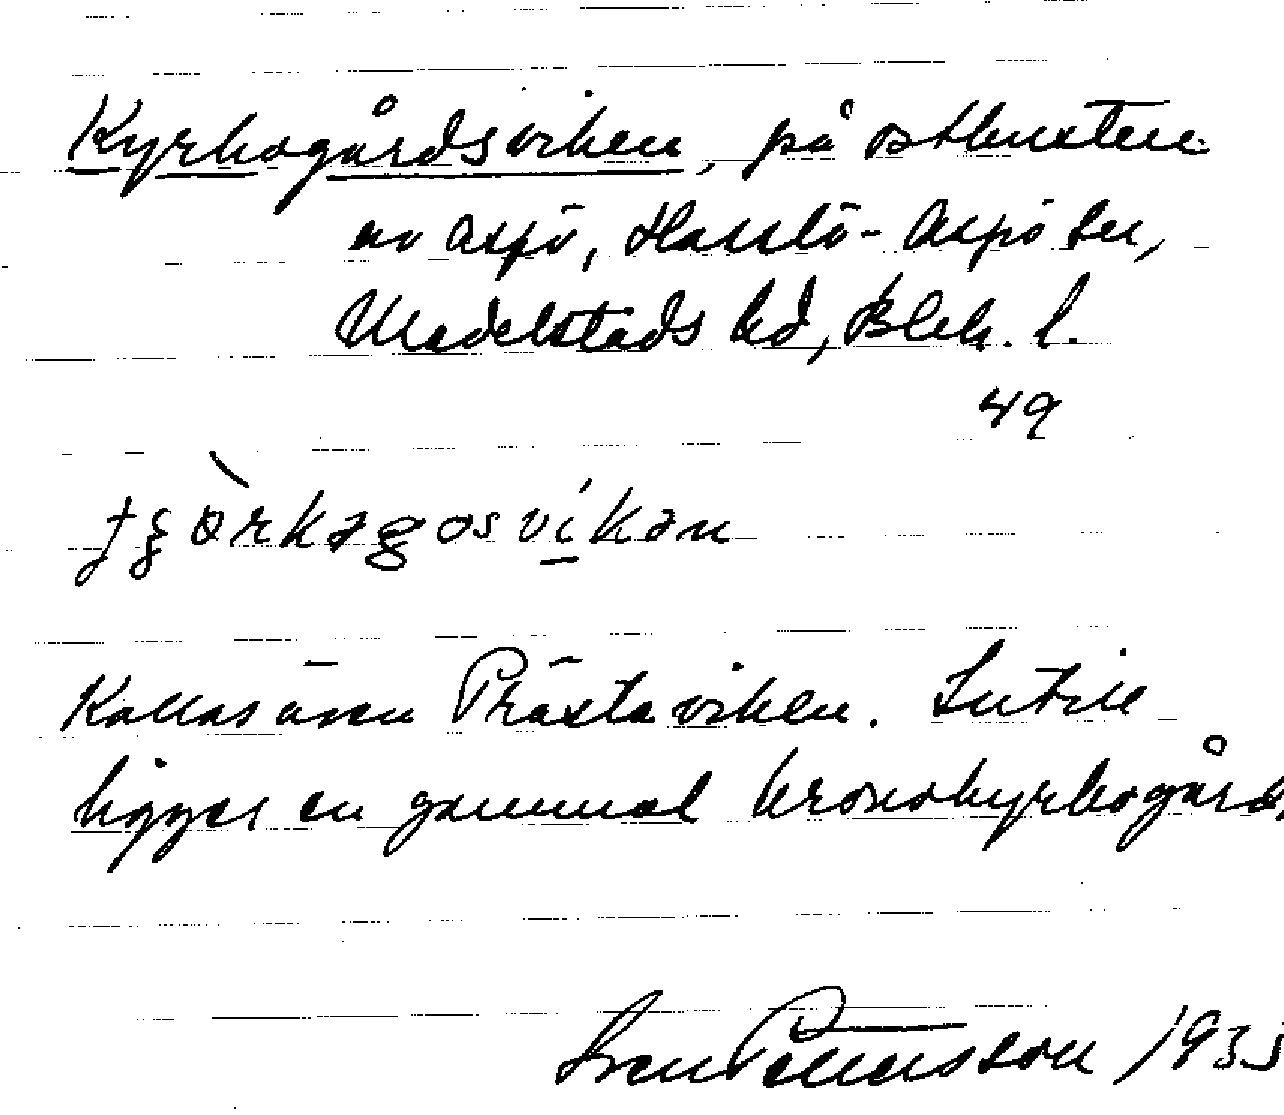 Kyrkogårdsviken, på ostkusten
av Aspö, Hasslö-Aspö sn,
Medelstads hd, Blek. l.
49
Kallas även Prästaviken. Intill
ligger en gammal kronokyrkogård,
Sven Pettersson 1935